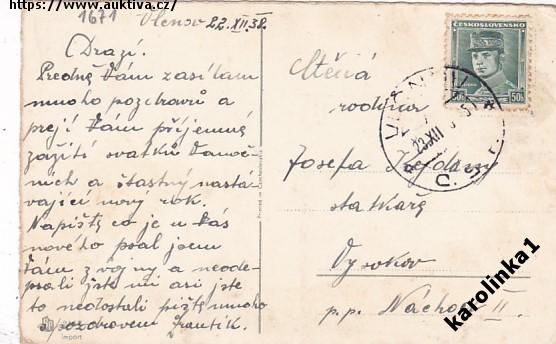 https://www.auktiva.cz/
1671
22.XII.38.
Drazí.
Předně Vám zasílám
mnoho pozdravů a
přeji Vám příjemné
zažití svátků Vánoč-
ních a šťastný nastá-
vající nový rok.
Napište co je u Vás
nového psal jsem
Vám z vojny a neode-
psali jste mi asi jste
to nedostali pište mnoho
pozdravem Frantík.
Import
ČESKOSLOVENSKO
50h 50h
23.XII
Č.S.R.
Ctěná
rodina
Josefa
statkáře
Vysokov
p.p. Náchod II.
karolinka1